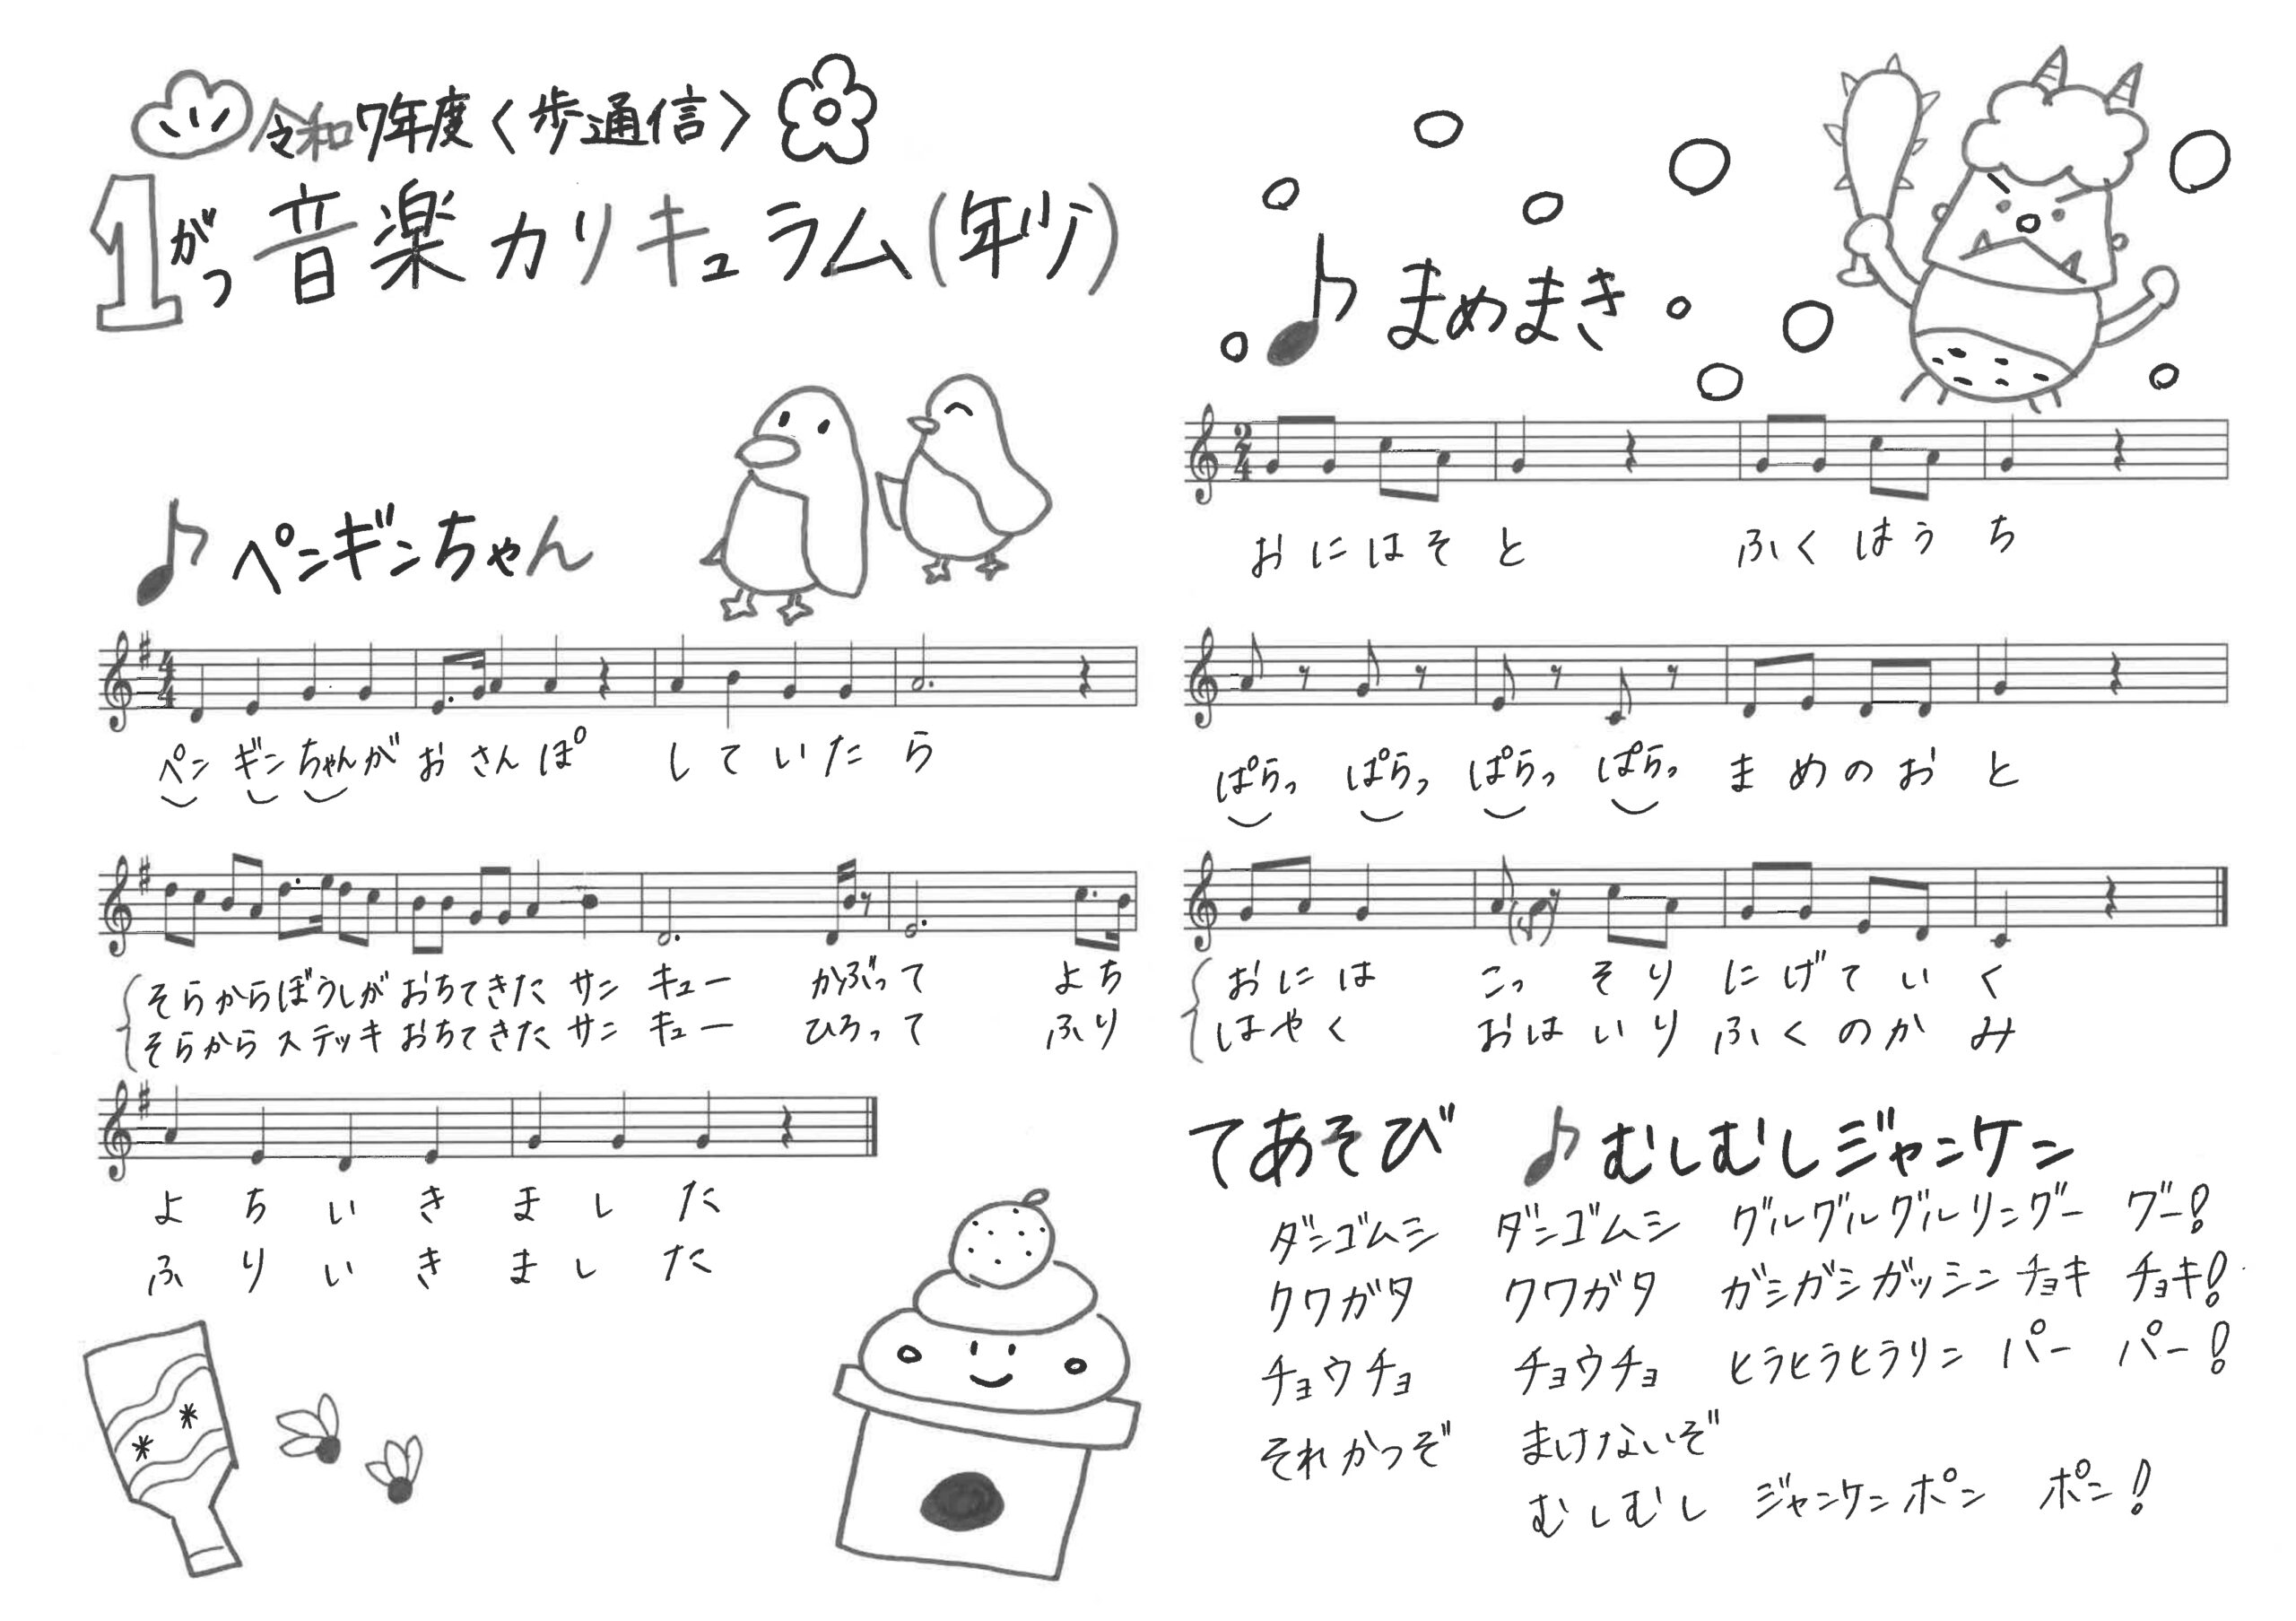 令和7年度〈歩通信〉
1がつ 音楽カリキュラム(年少)
♪ ペンギンちゃん
ペンギンちゃんが おさんぽ していたら
そらからぼうしが おちてきた サンキュー かぶって よち
そらからステッキ おちてきた サンキュー ひろって ふり
よちいきました
ふりいきました
♪ まめまき
おにはそと ふくはうち
ぱらっ ぱらっ ぱらっ ぱらっ まめのおと
おには こっそり にげていく
はやく おはいり ふくのかみ
てあそび ♪ むしむしジャンケン
ダンゴムシ ダンゴムシ グルグルグルリングー グー!
クワガタ クワガタ ガシガシガッシンチョキ チョキ!
チョウチョ チョウチョ ヒラヒラヒラリン パー パー!
それかつぞ まけないぞ
むしむし ジャンケンポン ポン!